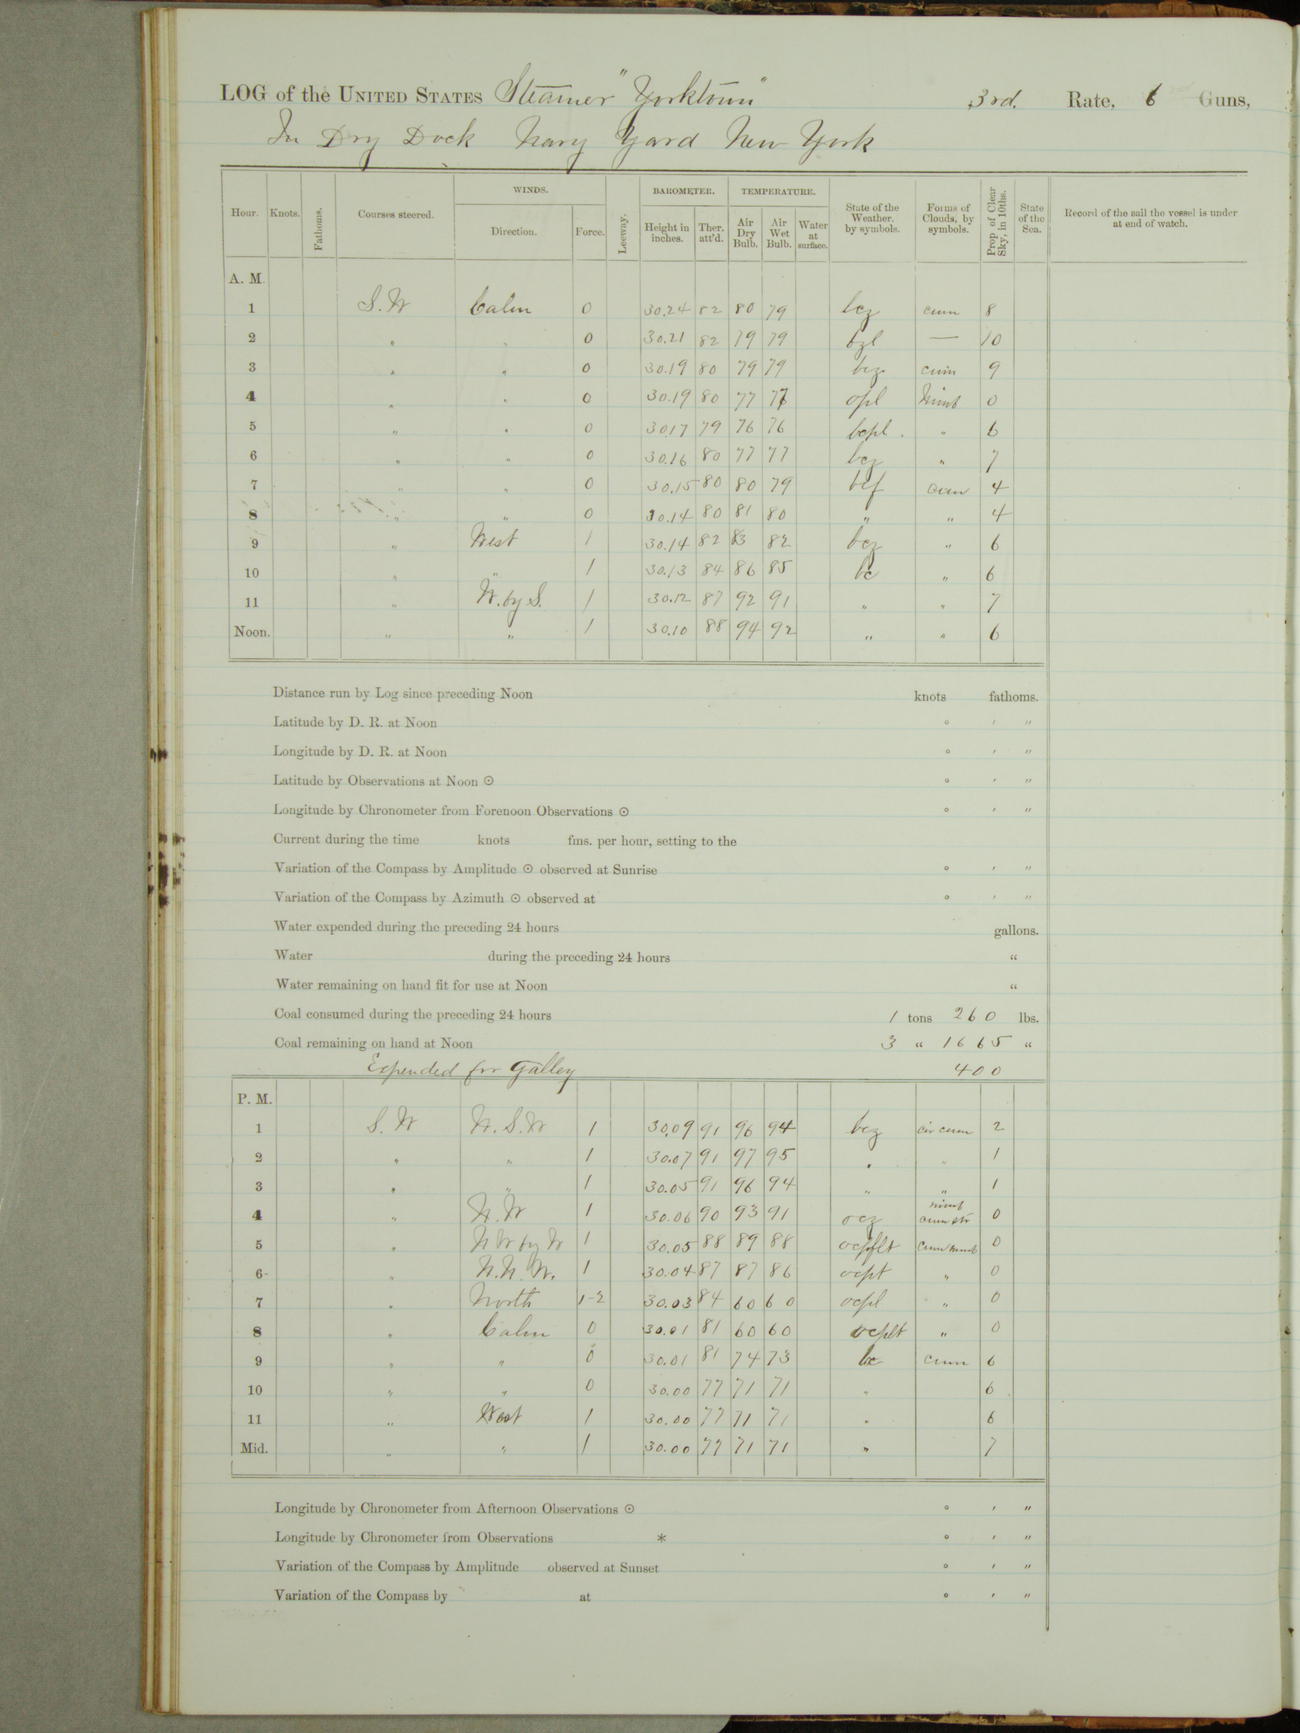 LOG of the UNITED STATES Steamer "Yorktown" 3rd. Rate, 6 Guns,
In Dry Dock Navy Yard New York
Hour. Knots. Fathoms. Courses steered. WINDS. Direction. Force. Leeway. BAROMETER. Height in inches. Ther. att'd. TEMPERATURE. Air Dry Bulb. Air Wet Bulb. Water at surface. State of the Weather, by symbols. Forms of Clouds, by symbols. Prop. of Clear Sky, in 10ths. State of the Sea. Record of the sail the vessel is under at end of watch.
A. M.
1 S.W Calm 0 30.24 82 80 79 bcz cum 8
2 " " 0 30.21 82 79 79 bzl — 10
3 " " 0 30.19 80 79 79 bcz cum 9
4 " " 0 30.19 80 77 77 opl Nimb 0
5 " " 0 30.17 79 76 76 bcpl. " 6
6 " " 0 30.16 80 77 77 bcz " 7
7 " " 0 30.15 80 80 79 bcf cum 4
8 " " 0 30.14 80 81 80 " " 4
9 " West 1 30.14 82 83 82 bcz " 6
10 " " 1 30.13 84 86 85 bc " 6
11 " W. by S. 1 30.12 87 92 91 " " 7
Noon. " " 1 30.10 88 94 92 " " 6
Distance run by Log since preceding Noon knots fathoms.
Latitude by D. R. at Noon ° ′ ″
Longitude by D. R. at Noon ° ′ ″
Latitude by Observations at Noon ☉ ° ′ ″
Longitude by Chronometer from Forenoon Observations ☉ ° ′ ″
Current during the time knots fms. per hour, setting to the
Variation of the Compass by Amplitude ☉ observed at Sunrise ° ′ ″
Variation of the Compass by Azimuth ☉ observed at ° ′ ″
Water expended during the preceding 24 hours gallons.
Water during the preceding 24 hours "
Water remaining on hand fit for use at Noon "
Coal consumed during the preceding 24 hours 1 tons 260 lbs.
Coal remaining on hand at Noon 3 " 1665 "
Expended for Galley 400
P. M.
1 S.W W.S.W 1 30.09 91 96 94 bcz cir cum 2
2 " " 1 30.07 91 97 95 " " 1
3 " " 1 30.05 91 96 94 " " 1
4 " N.W 1 30.06 90 93 91 ocz nimb cum str 0
5 " NW by W 1 30.05 88 89 88 ocpflt cum nimb 0
6 " N.N.W. 1 30.04 87 87 86 ocpt " 0
7 " North 1-2 30.03 84 60 60 ocpl " 0
8 " Calm 0 30.01 81 60 60 ocplt " 0
9 " " 0 30.01 81 74 73 bc cum 6
10 " " 0 30.00 77 71 71 " 6
11 " West 1 30.00 77 71 71 " 6
Mid. " " 1 30.00 77 71 71 " 7
Longitude by Chronometer from Afternoon Observations ☉ ° ′ ″
Longitude by Chronometer from Observations * ° ′ ″
Variation of the Compass by Amplitude observed at Sunset ° ′ ″
Variation of the Compass by at ° ′ ″